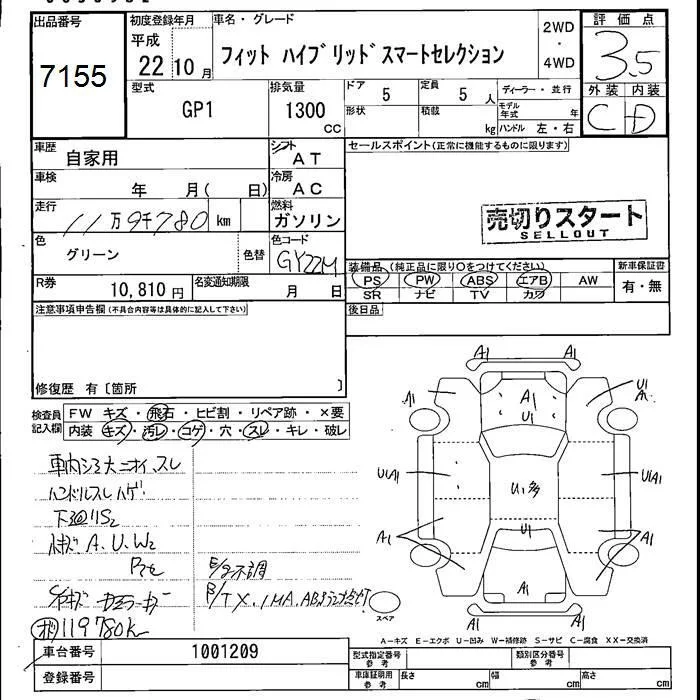 出品番号
7155
初度登録年月
平成
22 10 月
車名・グレード
フィット ハイブリッドスマートセレクション
2WD
・
4WD
評価点
3.5
外装 内装
C D
型式
GP1
排気量
1300
CC
ドア
5
形状
定員
5 人
積載
kg
ディーラー・並行
モデル
年式 年
ハンドル 左・右
車歴
自家用
シフト
AT
車検
年 月( 日)
冷房
AC
走行
11万9千780 km
燃料
ガソリン
色
グリーン
色替
色コード
GY22M
R券
10,810 円
名変通知期限
月 日
セールスポイント(正常に機能するものに限ります)
売切りスタート
SELLOUT
装備品 (純正品に限り○をつけてください)
PS PW ABS エアB AW
SR ナビ TV カワ
新車保証書
有・無
後日品
注意事項申告欄(不具合内容等は具体的に記入して下さい)
修復歴 有〔箇所 〕
検査員
記入欄
FW キズ・飛石・ヒビ割・リペア跡・×要
内装 キズ・汚レ・コゲ・穴・スレ・キレ・破レ
車内シミ大ニオイ、スレ
ハンドルスレハゲ
下廻りS2
A.U.W2
E/g不調
119780k
A1 A1
A1 A1 U1
A1
U1
U1A1 U1多 U1A1
U1
A1 A1
A1
スペア
A1 A1
A-キズ E-エクボ U-凹み W-補修跡 S-サビ C-腐食 XX-交換済
車台番号
1001209
登録番号
型式指定番号
参考
類別区分番号
参考
車庫証明用
参考
長さ cm
幅 cm
高さ cm